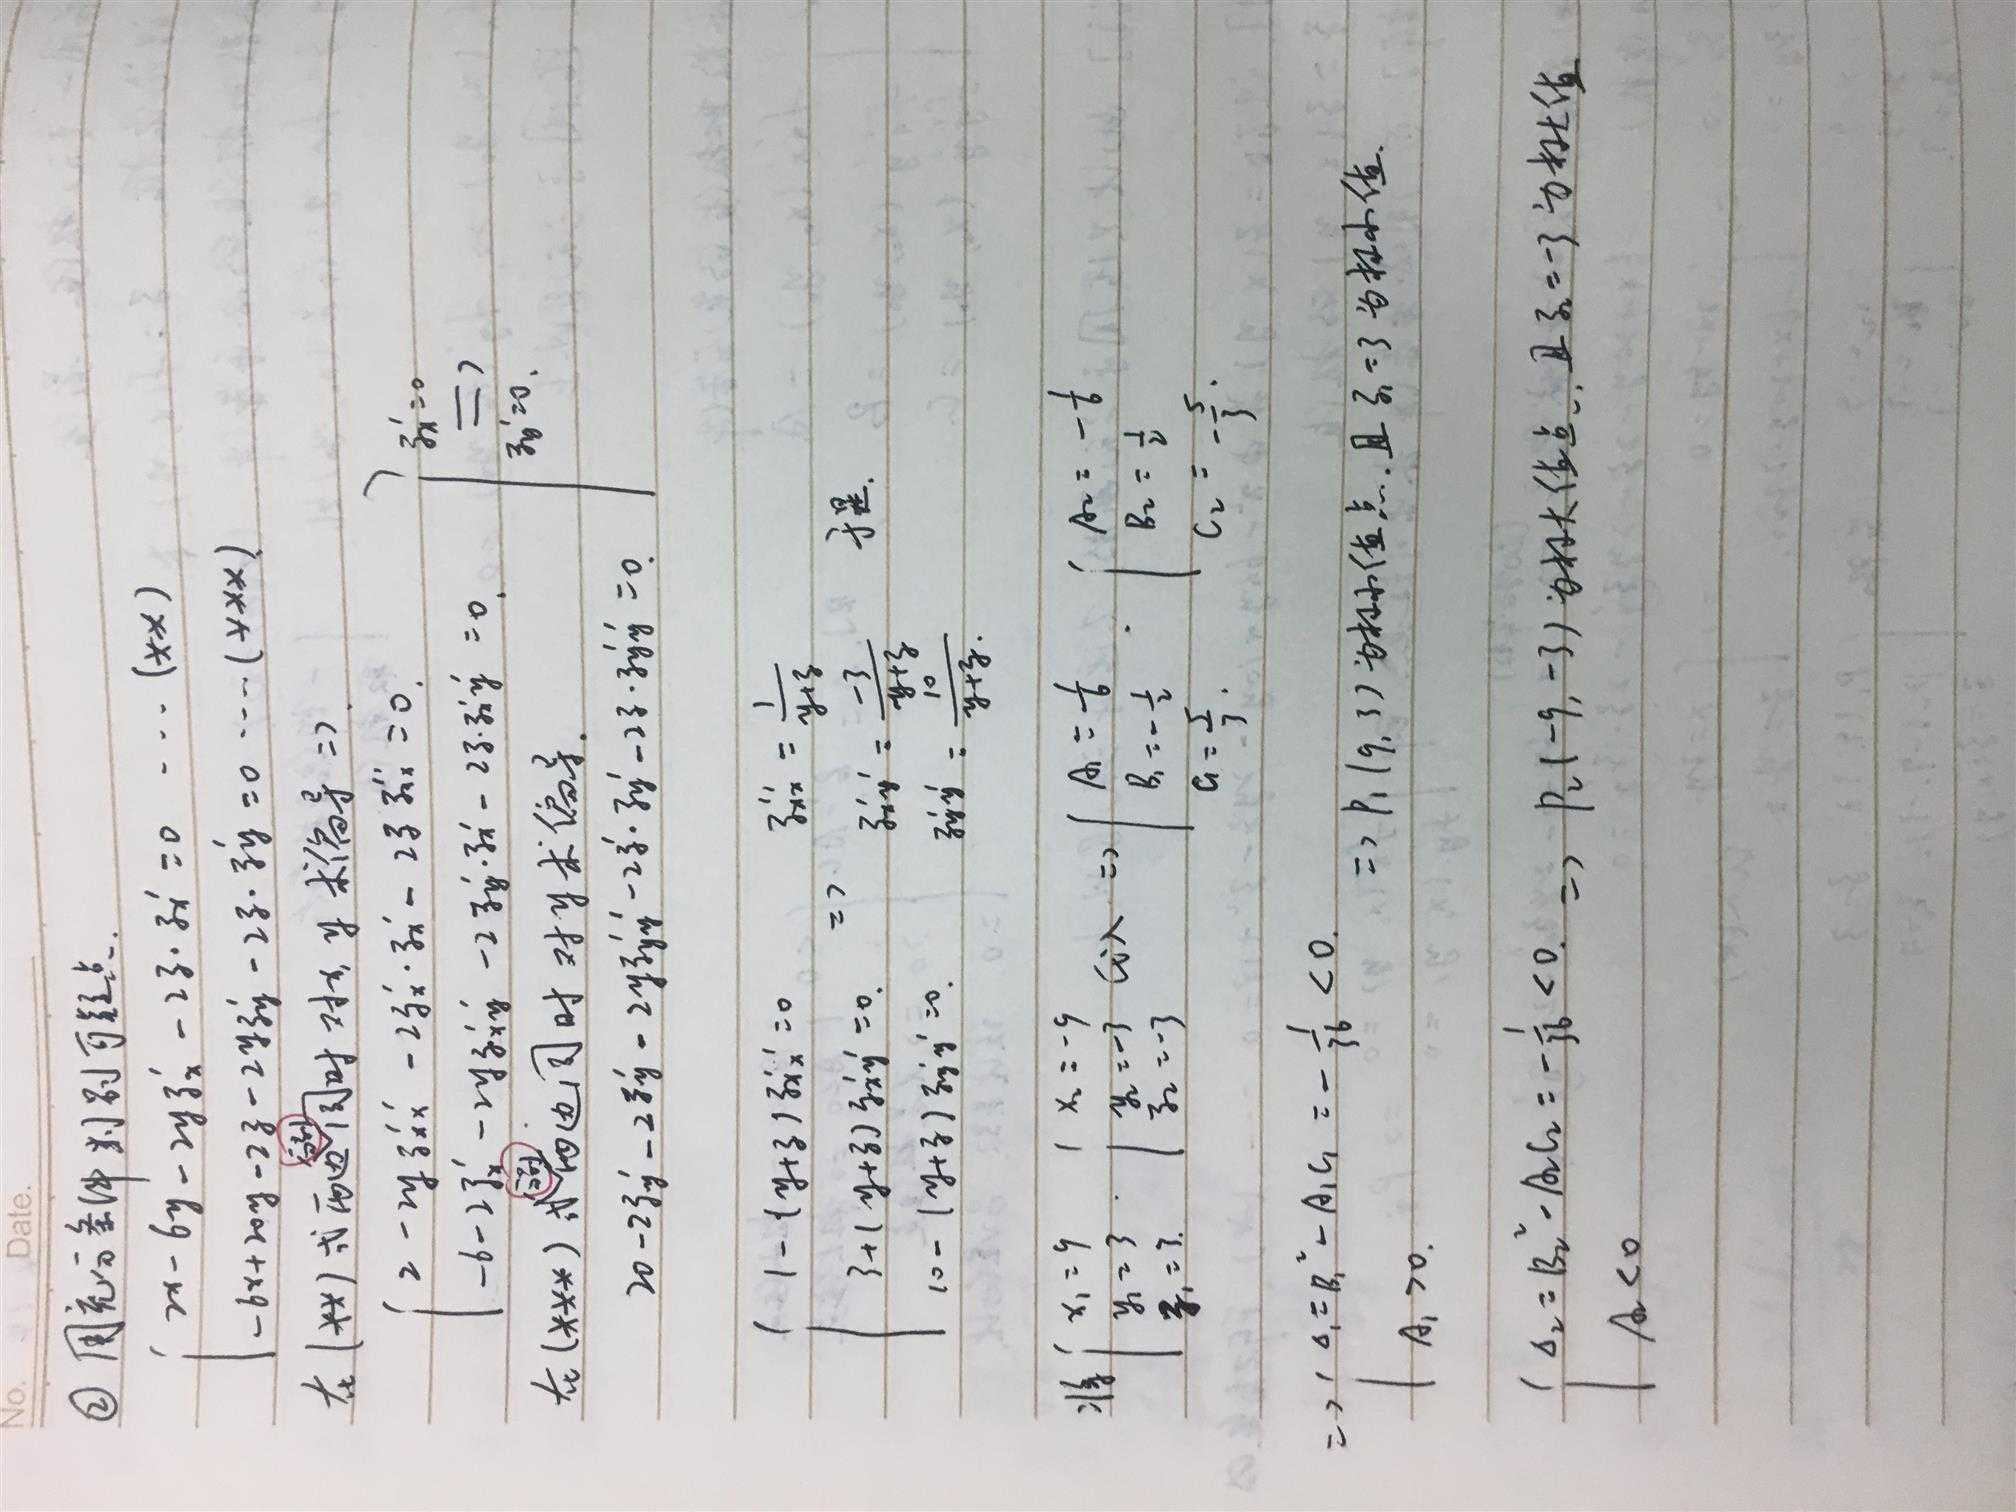 No.
Date.
② 用充分条件判别可疑点.
2x - 6y - 2yz'x - 2z·z'x = 0 ···· (**)
-6x + 20y - 2z - 2yz'y - 2z·z'y = 0 ···· (***)
在(**)式两边同时对x, y求偏导 =>
2 - 2yz''xx - 2z'x·z'x - 2zz''xx = 0.
-6 - 2z'x - 2yz''xy - 2z'y·z'x - 2z·z''xy = 0.
z'x = 0
z'y = 0.
=>
在(***)式两边同时对y求偏导.
20 - 2z'y - 2z'y - 2yz''yy - 2z'y·z'y - 2z·z''yy = 0.
1 - (y+z)z''xx = 0
3 + (y+z)z''xy = 0.
10 - (y+z)z''yy = 0.
=>
z''xx = 1/(y+z)
z''xy = -3/(y+z)
z''yy = 10/(y+z).
于是.
将 x₁ = 9 y₁ = 3 z₁ = 3. x₂ = -9 y₂ = -3 z₂ = -3 代入 => A₁ = 1/6 B₁ = -1/2 C₁ = 5/3. A₂ = -1/6 B₂ = 1/2 C₂ = -5/3.
=> Δ₁ = B₁² - A₁C₁ = -1/36 < 0.
A₁ > 0.
=> P₁(9, 3)为极小值点. 且 z₁ = 3 为极小值.
Δ₂ = B₂² - A₂C₂ = -1/36 < 0.
A₂ < 0
=> P₂(-9, -3)为极大值点. 且 z₂ = -3 为极大值